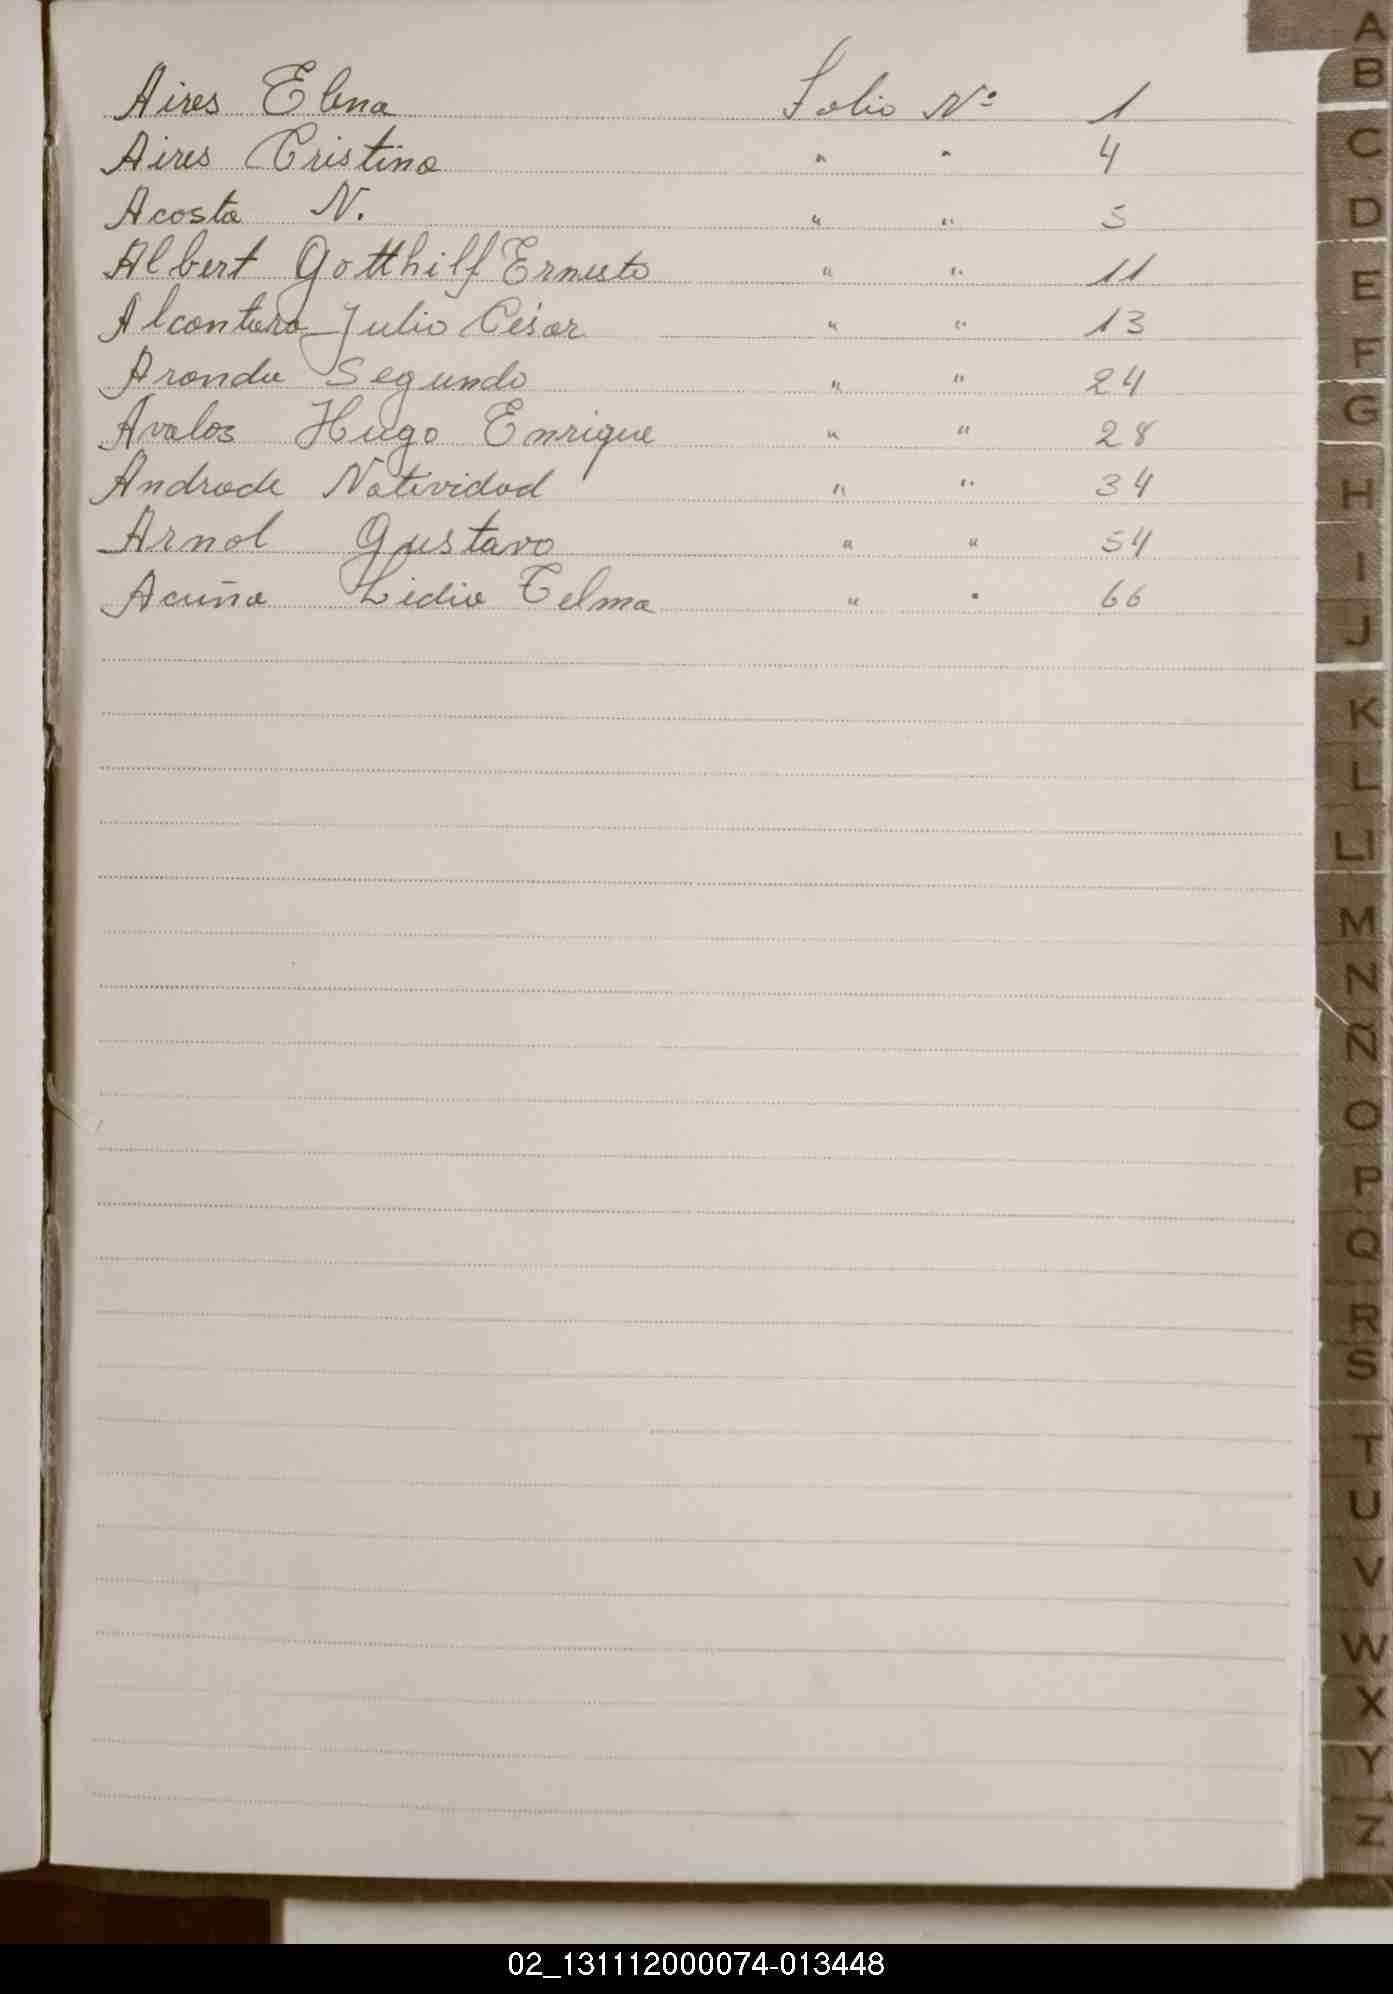 Aires Elena Folio Nº 1
Aires Cristina " " 4
Acosta N. " " 5
Albert Gotthilf Ernesto " " 11
Alcantara Julio César " " 13
Aranda Segundo " " 24
Avalos Hugo Enrique " " 28
Andrade Natividad " " 34
Arnol Gustavo " " 54
Acuña Lidia Telma " " 66
A
B
C
D
E
F
G
H
I
J
K
L
Ll
M
N
Ñ
O
P
Q
R
S
T
U
V
W
X
Y
Z
02_131112000074-013448